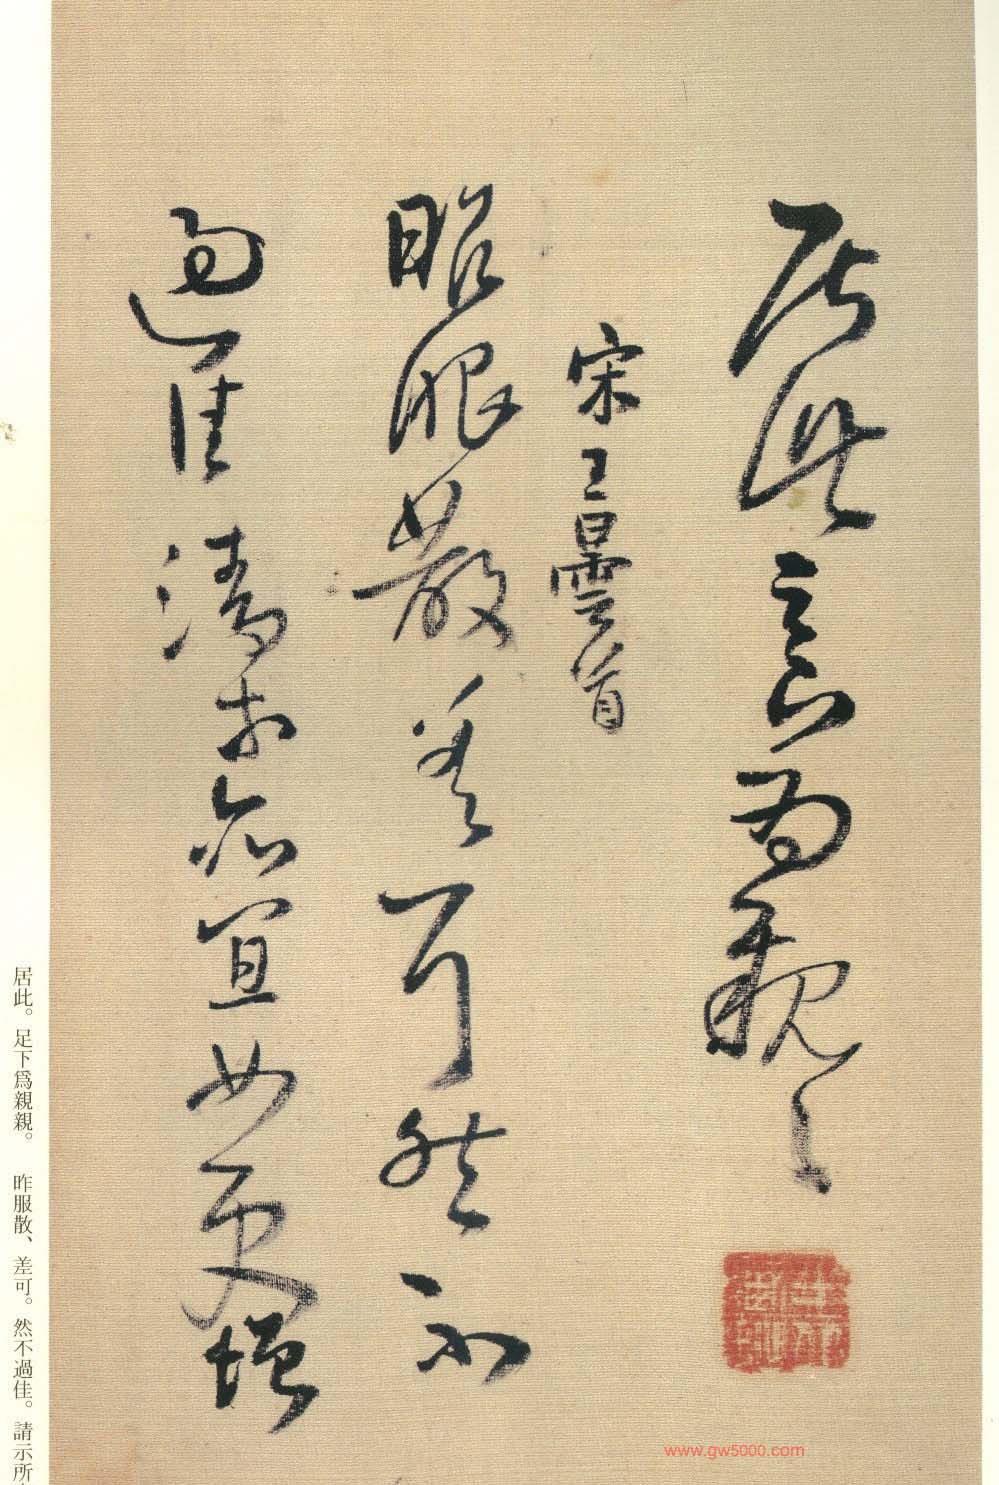 居此足下為親〻
宋王曇首
昨服散差可然不
過佳請示所宜如更增
居此。足下爲親親。　昨服散、差可。然不過佳。請示所
www.gw5000.com